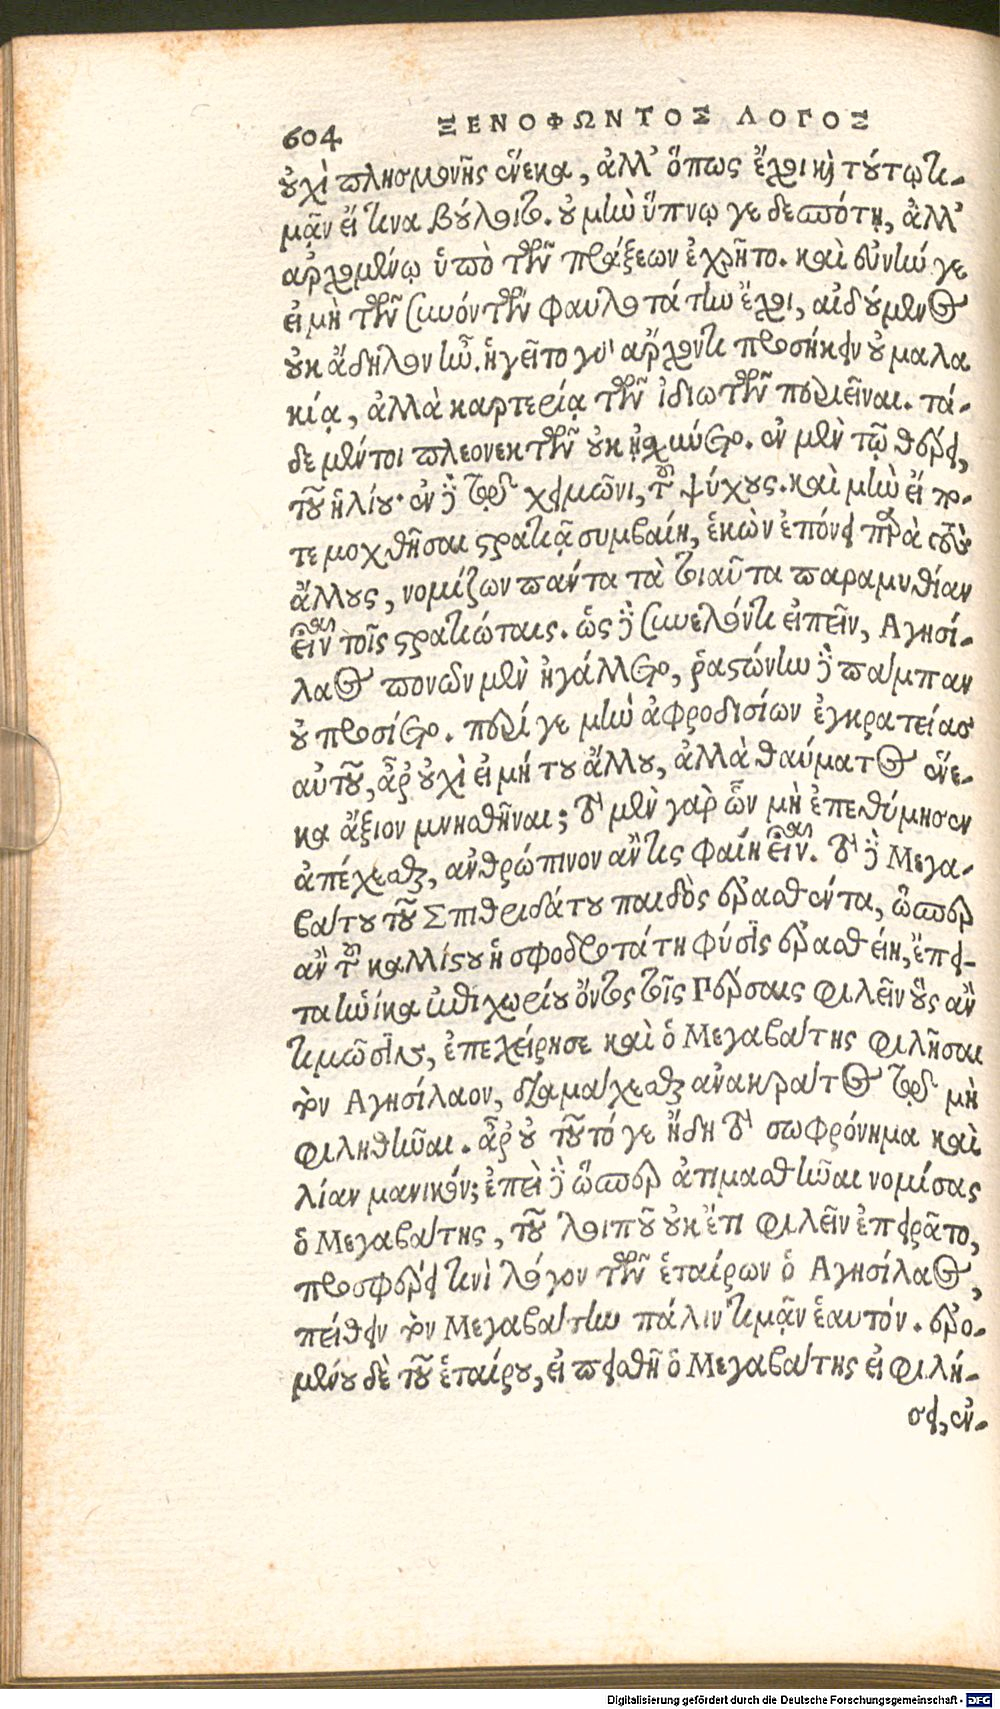 604 ΞΕΝΟΦΩΝΤΟΣ ΛΟΓΟΣ
οὐχὶ πλησμονῆς ἕνεκα, ἀλλ' ὅπως ἔχοι καὶ τούτῳ τι-
μᾷν εἴ τινα βούλοιτο. οὐ μὴν ὕπνῳ γε δεσπότῃ, ἀλλ'
ἀρχομένῳ ὑπὸ τῶν πράξεων ἐχρῆτο. καὶ εὐνήν γε
εἰ μὴ τῶν συνόντων φαυλοτάτην ἔχοι, αἰδούμενος
οὐκ ἄδηλον ἦν. ἡγεῖτο γὰρ ἄρχοντι προσήκειν οὐ μαλα
κίᾳ, ἀλλὰ καρτερίᾳ τῶν ἰδιωτῶν περιεῖναι. τά-
δε μέντοι πλεονεκτῶν οὐκ ᾐσχύνετο. ἐν μὲν τῷ θέρει,
τοῦ ἡλίου· ἐν δὲ τῷ χειμῶνι, τοῦ ψύχους. καὶ μὴν εἴ πο-
τε μοχθῆσαι στρατιᾷ συμβαίη, ἑκὼν ἐπόνει παρὰ τοὺς
ἄλλους, νομίζων πάντα τὰ τοιαῦτα παραμυθίαν
εἶναι τοῖς στρατιώταις. ὡς δὲ συνελόντι εἰπεῖν, Αγησί-
λαος πονῶν μὲν ἠγάλλετο, ῥᾳστώνην δὲ πάμπαν
οὐ προσίετο. περί γε μὴν ἀφροδισίων ἐγκρατείας
αὐτοῦ, ἆρ' οὐχὶ εἰ μή του ἄλλου, ἀλλὰ θαύματος ἕνε-
κα ἄξιον μνησθῆναι; τὸ μὲν γὰρ ὧν μὴ ἐπεθύμησεν
ἀπέχεσθαι, ἀνθρώπινον ἄν τις φαίη εἶναι. τὸ δὲ Μεγα-
βάτου τοῦ Σπιθριδάτου παιδὸς ἐρασθέντα, ὥσπερ
ἂν τοῦ καλλίστου ἡ σφοδροτάτη φύσις ἐρασθείη, ἔπει-
τα ἡνίκα ἐπιχωρίου ὄντος τοῖς Πέρσαις φιλεῖν οὓς ἂν
τιμῶσιν, ἐπεχείρησε καὶ ὁ Μεγαβάτης φιλῆσαι
τὸν Αγησίλαον, διαμάχεσθαι ἀνακράτος τῷ μὴ
φιληθῆναι. ἆρ' οὐ τοῦτό γε ἤδη τὸ σωφρόνημα καὶ
λίαν μανικόν; ἐπεὶ δὲ ὥσπερ ἀτιμασθῆναι νομίσας
ὁ Μεγαβάτης, τοῦ λοιποῦ οὐκ ἔτι φιλεῖν ἐπειρᾶτο,
προσφέρει τινὶ λόγον τῶν ἑταίρων ὁ Αγησίλαος,
πείθειν τὸν Μεγαβάτην πάλιν τιμᾷν ἑαυτόν. ἐρο-
μένου δὲ τοῦ ἑταίρου, εἰ πεισθῇ ὁ Μεγαβάτης εἰ φιλή-
σει, ἐν-
Digitalisierung gefördert durch die Deutsche Forschungsgemeinschaft - DFG